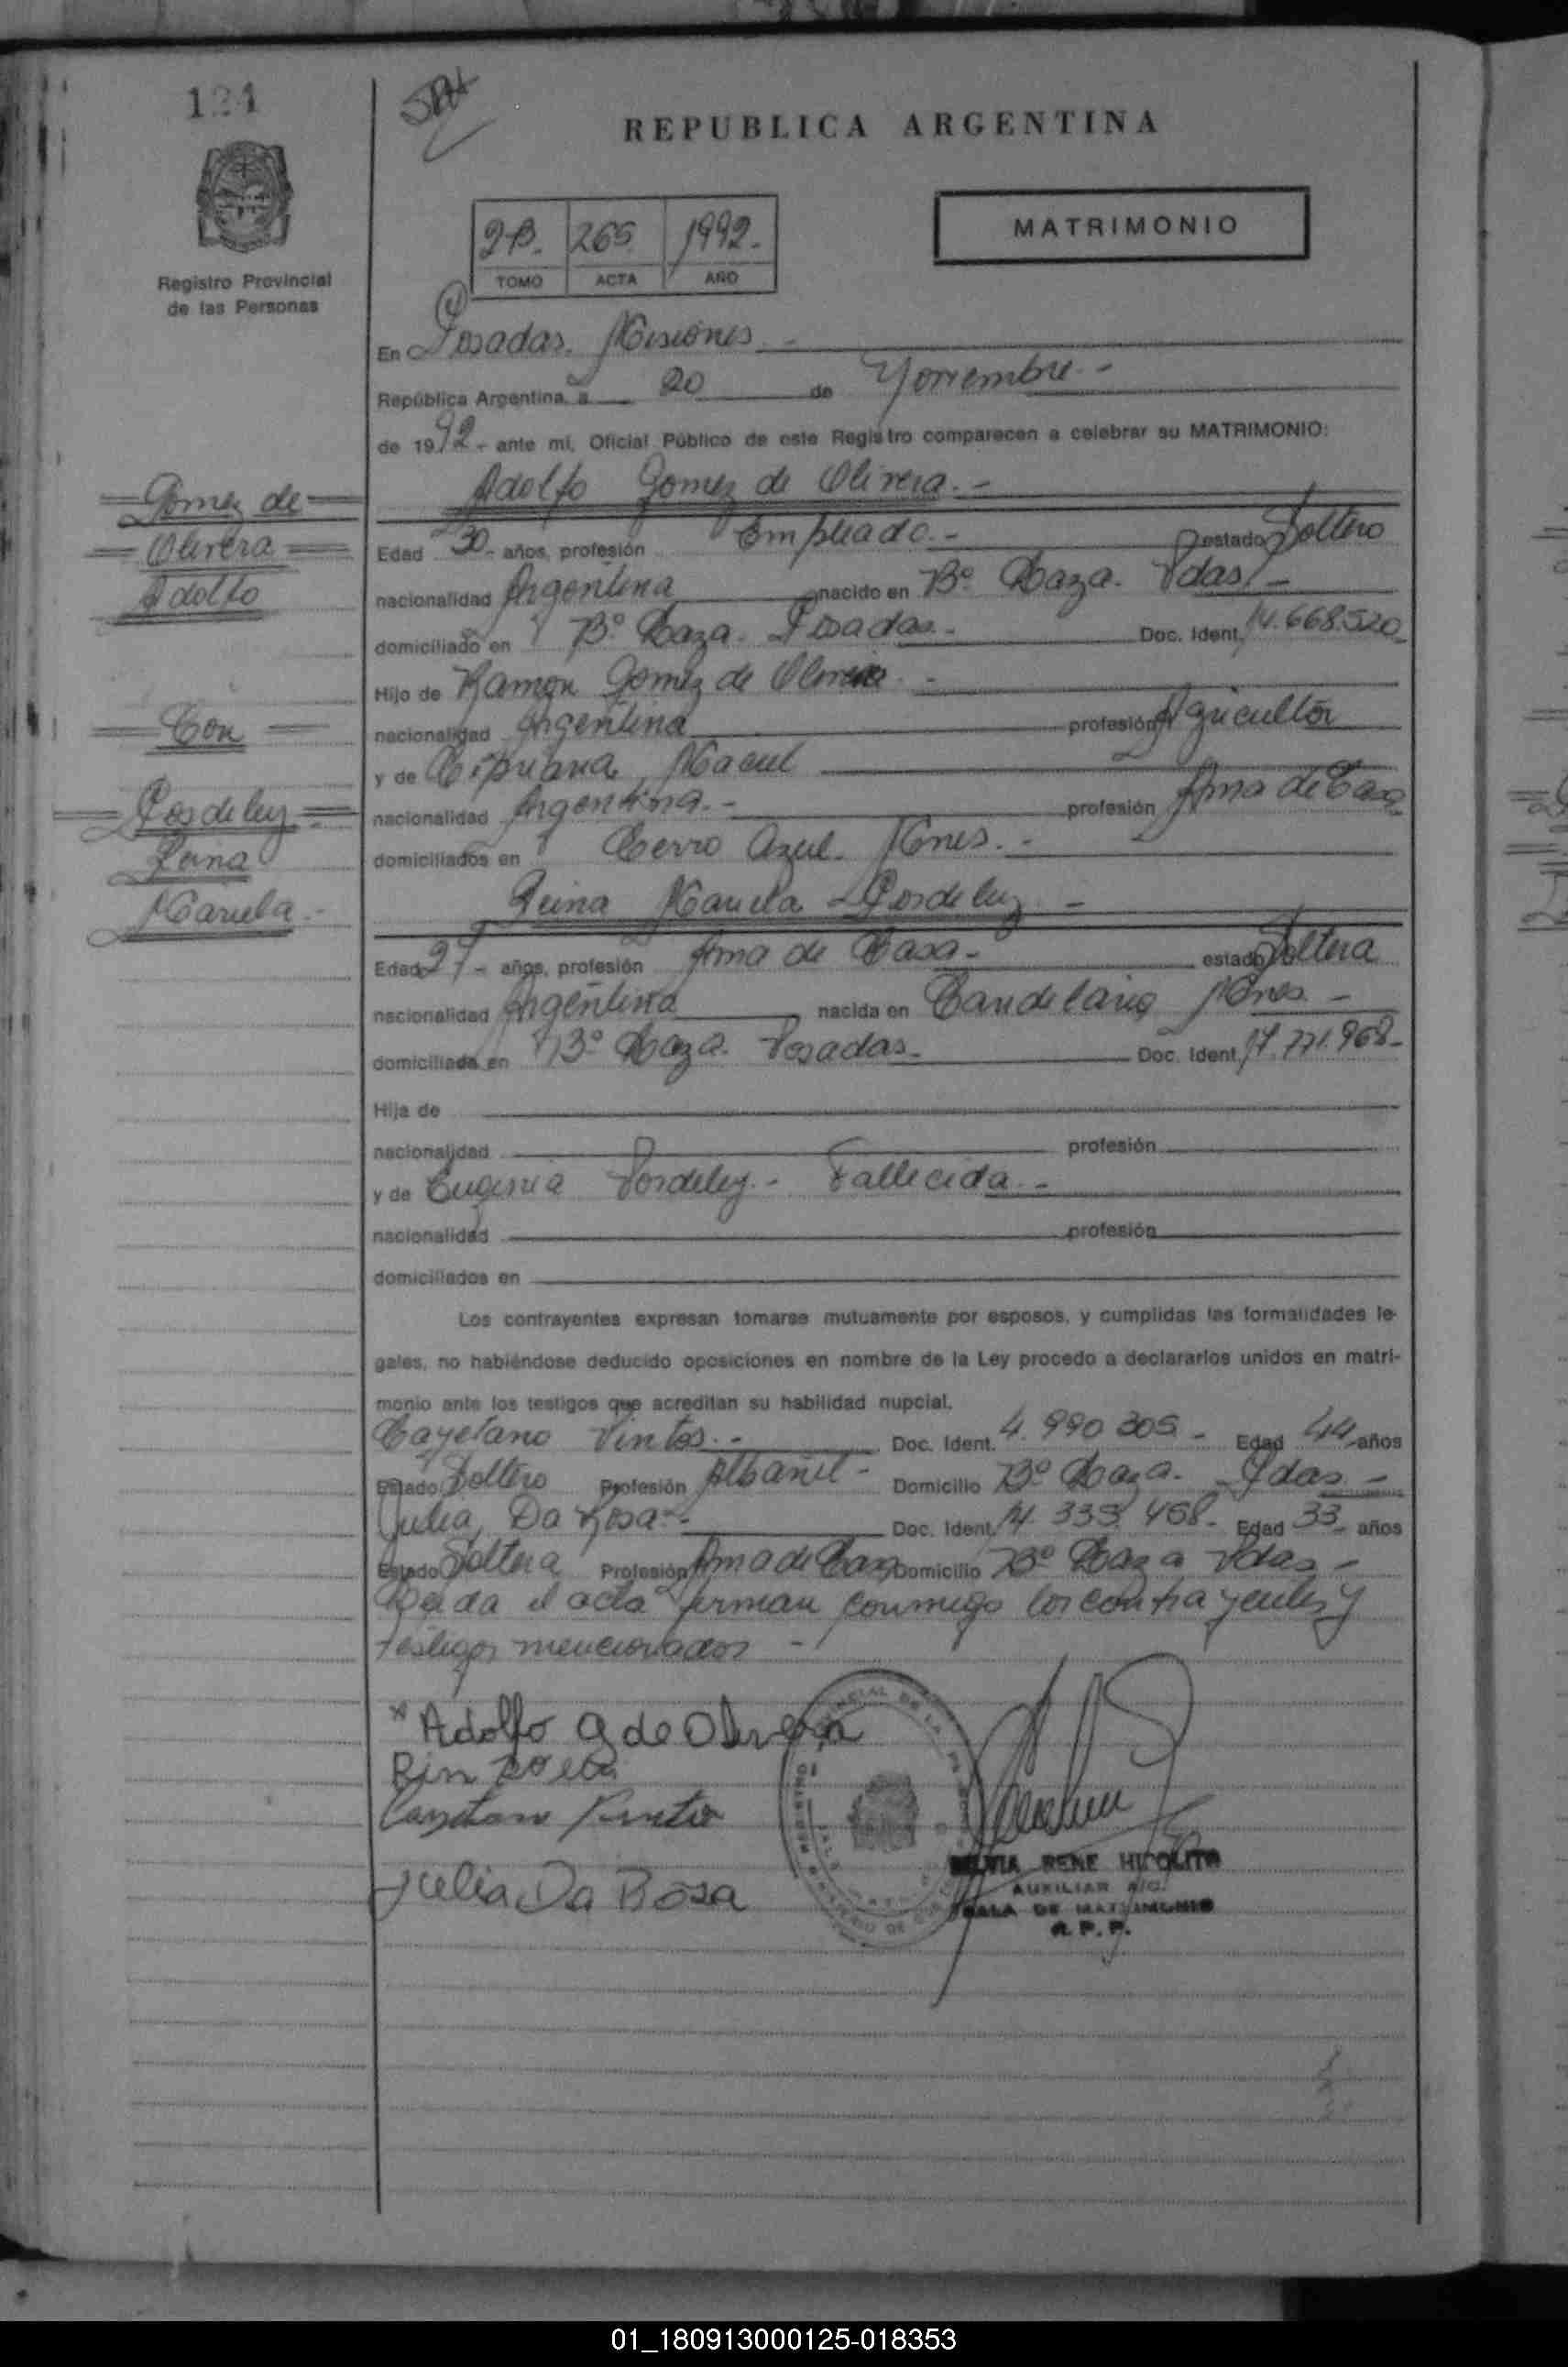 124
REPUBLICA ARGENTINA
MATRIMONIO
2B. 265 1992.
TOMO ACTA AÑO
Registro Provincial
de las Personas
En Posadas. Misiones
República Argentina, a 20 de Noviembre
de 1992 - ante mí, Oficial Público de este Registro comparecen a celebrar su MATRIMONIO:
Adolfo Gomez de Olivera.-
Gomez de
Olivera
Adolfo
Edad 30 - años, profesión Empleado.- estado Soltero
nacionalidad Argentina nacido en Bº Laza. Pdas.-
domiciliado en Bº Laza. Posadas.- Doc. Ident. 14.668.520
Hijo de Ramon Gomez de Olivera.-
Con
nacionalidad Argentina profesión Agricultor
y de Cipriana
Posdeley
Reina
Mariela.-
nacionalidad Argentina.- profesión Ama de Casa
domiciliados en Cerro Azul. Mnes.-
Reina Mariela Posdeley.-
Edad 27 - años, profesión Ama de Casa.- estado Soltera
nacionalidad Argentina nacida en Candelaria Mnes.-
domiciliada en Bº Laza. Posadas.- Doc. Ident. 17.771.968-
Hija de
nacionalidad profesión
y de Eugenia Posdeley.- Fallecida.-
nacionalidad profesión
domiciliados en
Los contrayentes expresan tomarse mutuamente por esposos, y cumplidas las formalidades le-
gales, no habiéndose deducido oposiciones en nombre de la Ley procedo a declararlos unidos en matri-
monio ante los testigos que acreditan su habilidad nupcial.
Cayetano Vintos.- Doc. Ident. 4.990 305 - Edad 44 años
Estado Soltero Profesión Albañil - Domicilio Bº Laza. Pdas.-
Julia Da Rosa.- Doc. Ident. 14.335.458- Edad 33 años
Estado Soltera Profesión Ama de Casa Domicilio Bº Laza Pdas.-
Leida el acta firman conmigo los contrayentes y
testigos mencionados -
* Adolfo G de Olivera
Julia Da Rosa
SILVIA RENE HIPOLITO
AUXILIAR A/C.
SALA DE MATRIMONIO
R. P. P.
01_180913000125-018353